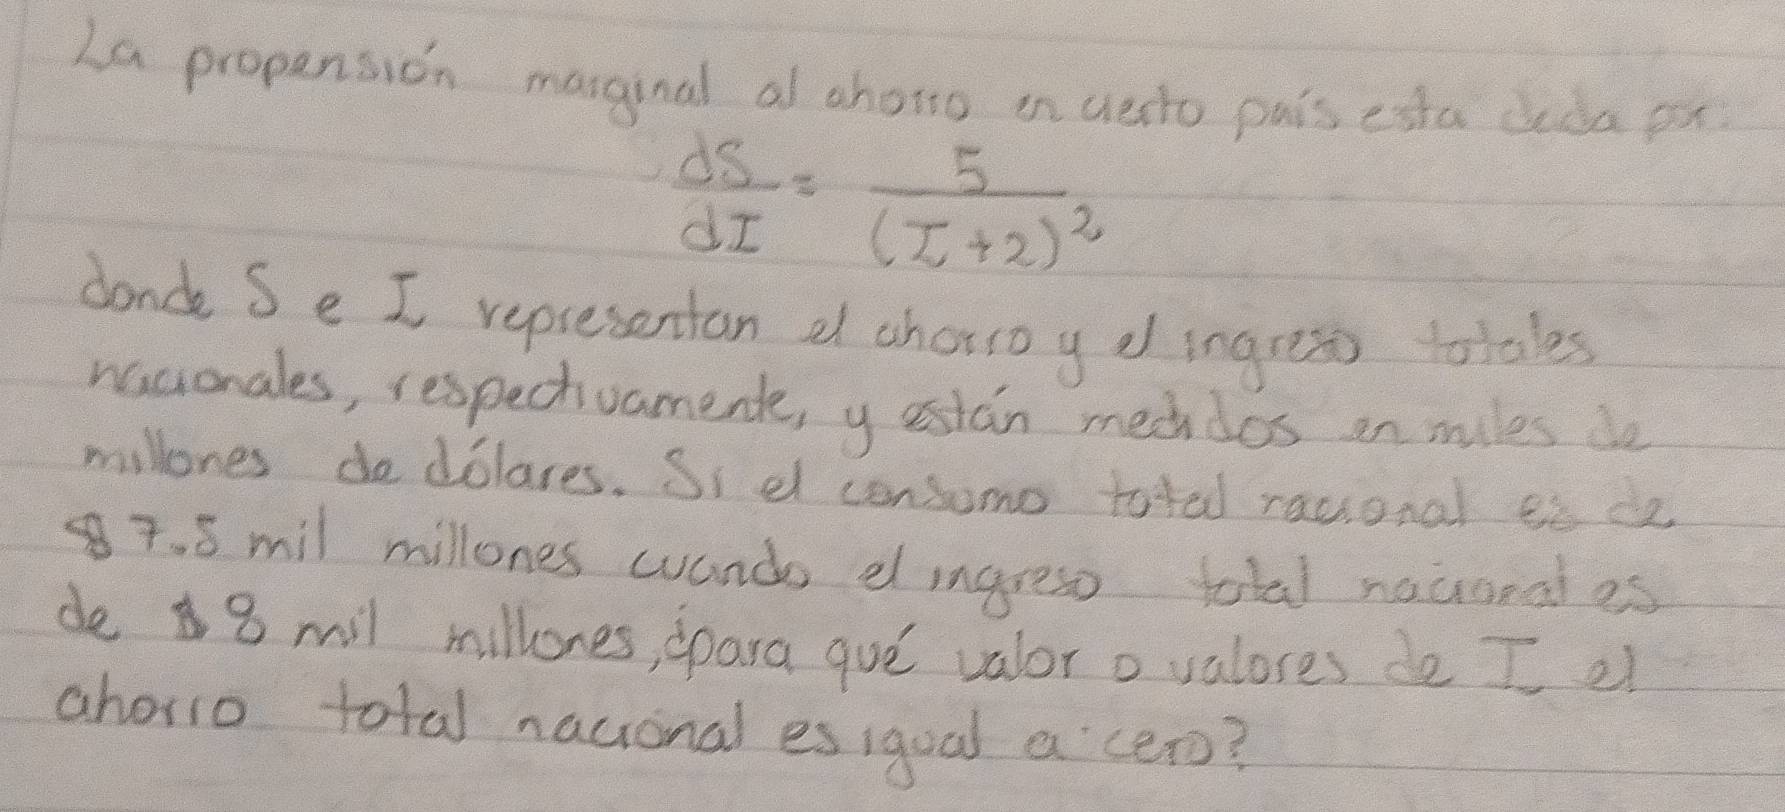 La propensión marginal al ahorro en cierto país esta dada por:
dS/dI = 5/(I+2)²
donde S e I representan el ahorro y el ingreso totales
nacionales, respectivamente, y están medidos en miles de
millones de dólares. Si el consumo total nacional es de
$7.5 mil millones cuando el ingreso total nacional es
de $8 mil millones, ¿para qué valor o valores de I el
ahorro total nacional es igual a cero?